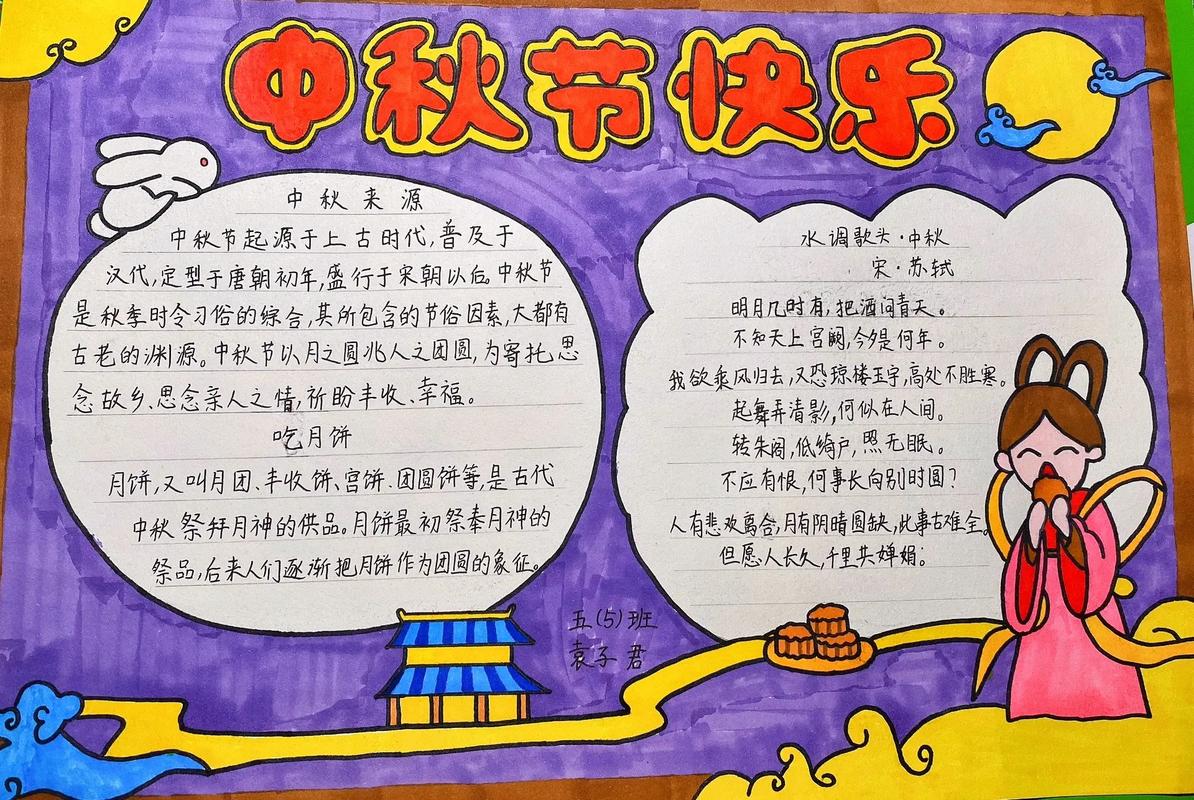 中秋节快乐
中秋来源
中秋节起源于上古时代,普及于
汉代,定型于唐朝初年,盛行于宋朝以后。中秋节
是秋季时令习俗的综合,其所包含的节俗因素,大都有
古老的渊源。中秋节以月之圆兆人之团圆,为寄托思
念故乡、思念亲人之情,祈盼丰收、幸福。
吃月饼
月饼,又叫月团、丰收饼、宫饼、团圆饼等,是古代
中秋祭拜月神的供品。月饼最初祭奉月神的
祭品,后来人们逐渐把月饼作为团圆的象征。
水调歌头·中秋
宋·苏轼
明月几时有,把酒问青天。
不知天上宫阙,今夕是何年。
我欲乘风归去,又恐琼楼玉宇,高处不胜寒。
起舞弄清影,何似在人间。
转朱阁,低绮户,照无眠。
不应有恨,何事长向别时圆?
人有悲欢离合,月有阴晴圆缺,此事古难全。
但愿人长久,千里共婵娟。
五(5)班
袁子君